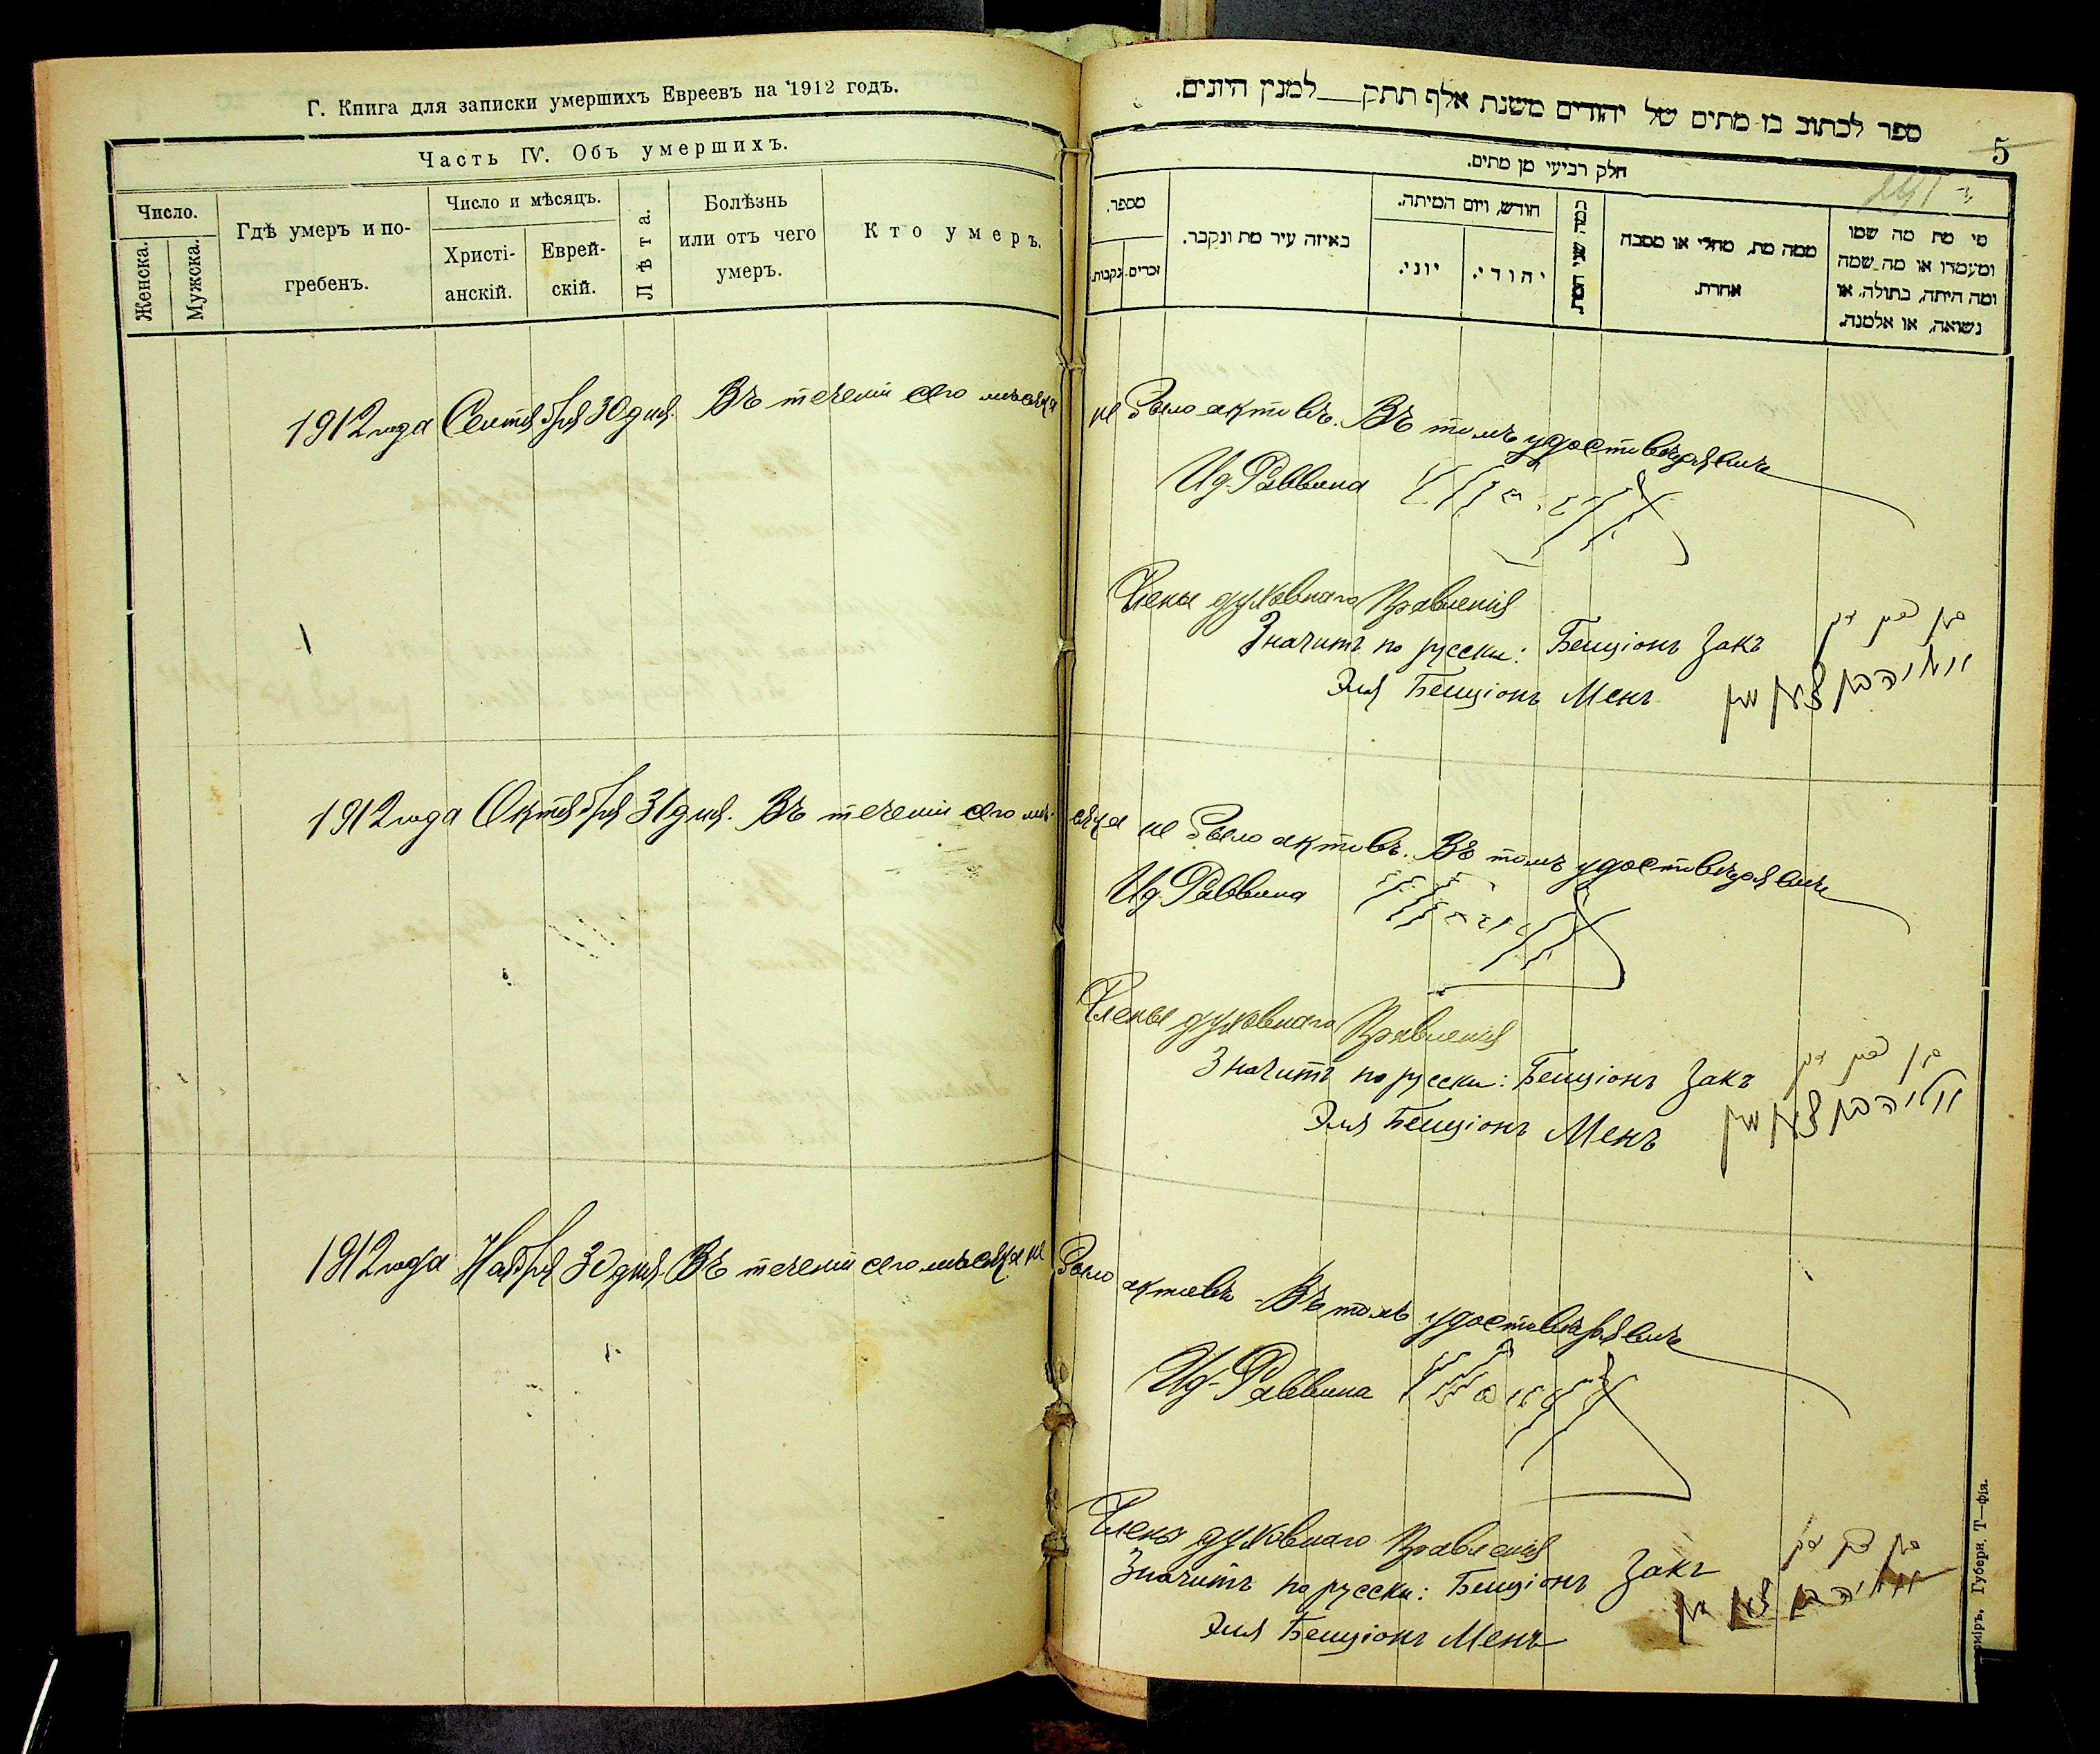 Г. Книга для записки умершихъ Евреевъ на 1912 годъ.
Часть IV. Объ умершихъ.
Число.
Женска.
Мужска.
Гдѣ умеръ и по-
гребенъ.
Число и мѣсяцъ.
Христі-
анскій.
Еврей-
скій.
Лѣта.
Болѣзнь
или отъ чего
умеръ.
Кто умеръ.
ספר לכתוב בו מתים של יהודים משנת אלף תתק__למנין היונים.
5
חלק רביעי מן מתים.
מספר.
זכרים.
נקבות.
באיזה עיר מת ונקבר.
חודש, ויום המיתה.
יוני.
יהודי.
כמה שני המת
ממה מת, מחלי או מסבה
אחרת.
מי מת מה שמו
ומעמדו או מה שמה
ומה היתה, בתולה, או
נשואה, או אלמנה.
1912 года Сентября 30 дня. Въ теченіи сего мѣсяца не было актовъ. Въ томъ удостовѣряемъ
Ид. Раввина
Члены духовнаго Правленія
Значитъ по русски: Бенціонъ Закъ
Эля Бенціонъ Менъ
1912 года Октября 31 дня. Въ теченіи сего мѣсяца не было актовъ. Въ томъ удостовѣряемъ
Ид. Раввина
Члены духовнаго Правленія
Значитъ по русски: Бенціонъ Закъ
Эля Бенціонъ Менъ
1912 года Ноября 30 дня. Въ теченіи сего мѣсяца не было актовъ. Въ томъ удостовѣряемъ
Ид. Раввина
Члены духовнаго Правленія
Значитъ по русски: Бенціонъ Закъ
Эля Бенціонъ Менъ
Губерн. Т—фія.